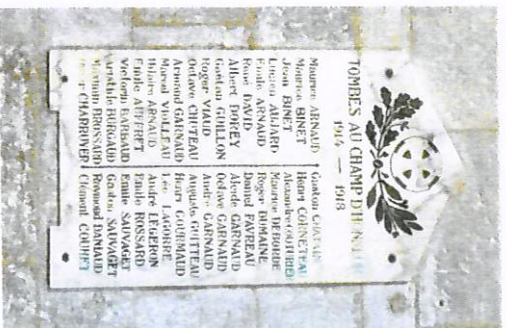 TOMBÉS AU CHAMP D'HONNEUR
1914 — 1918
Maurice ARNAUD
Maurice BINET
Jean BINET
Lucien
Emile ARNAUD
René DAVID
Albert DOREY
Gaëtan GUILLON
Roger VIAUD
Octave CHUTEAU
Armand GARNAUD
Marcel VIOLLEAU
Hilaire ARNAUD
Emile AUFFRET
Victorin BARBAUD
Aristide BURGAUD
Maximin BROSSARD
CHARRUYER
Gaston
Henri CORNETEAU
Alexandre COUTURIER
Maurice DEBORDE
Roger DUMAINE
Daniel FAVREAU
Alcide GARNAUD
Octave GARNAUD
André GARNAUD
Auguste GUITTEAU
Henri GOURMAUD
Léo LAGORRE
André LEGERON
Emile ROSSARD
Emile SAUVAGET
Gaston SAUVAGET
Raymond DANIAUD
Clément